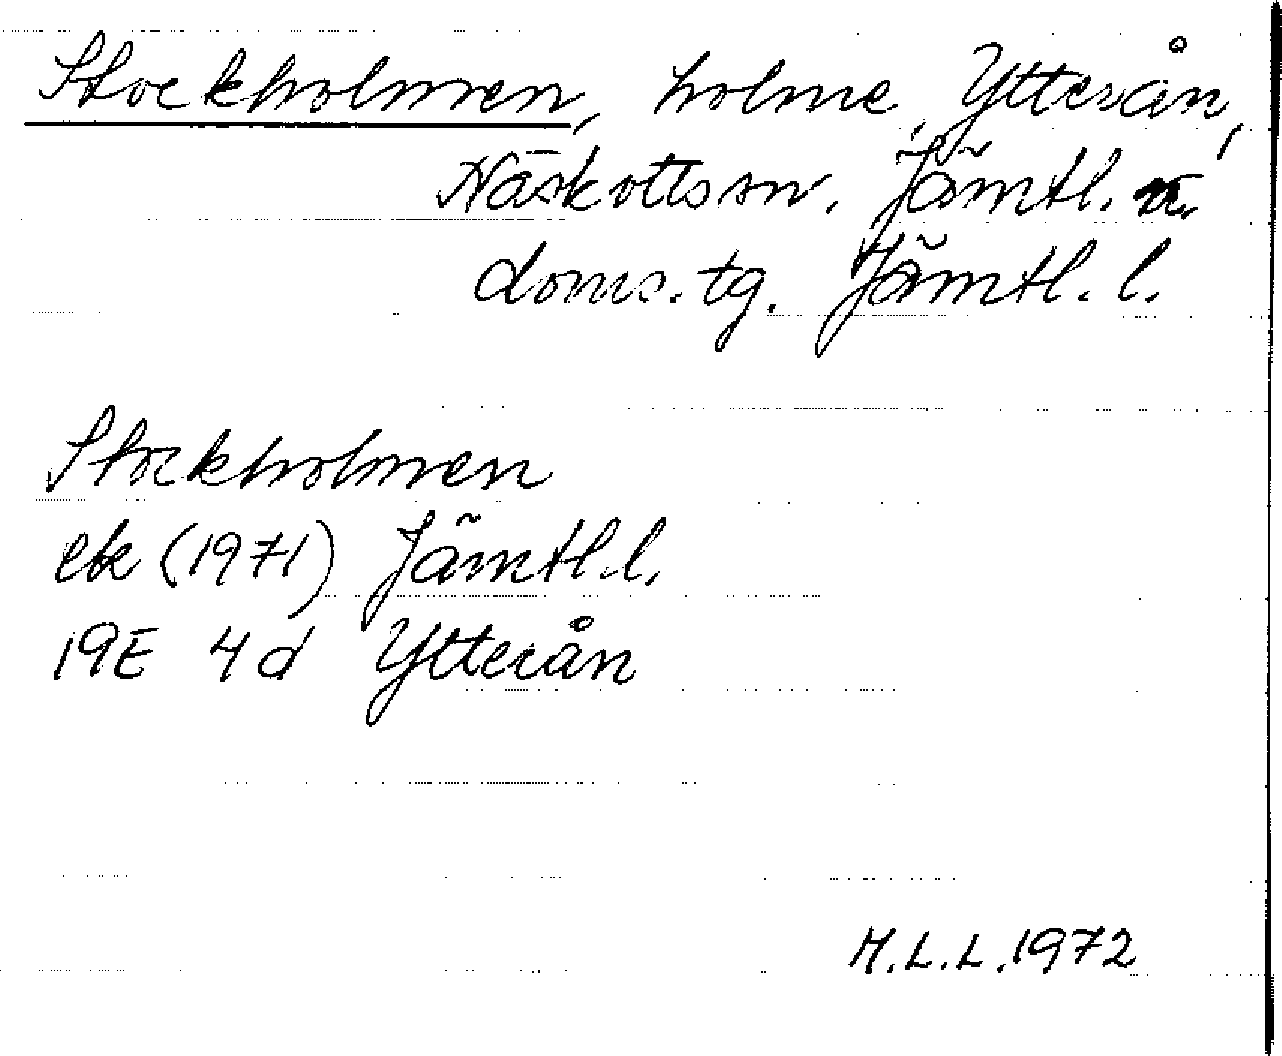 Stockholmen, holme, Ytterån,
Näskotts sn. Jämtl. n.
doms. tg. Jämtl. l.
Stockholmen
ek (1971) Jämtl. l.
19E 4d Ytterån
M.L.L. 1972